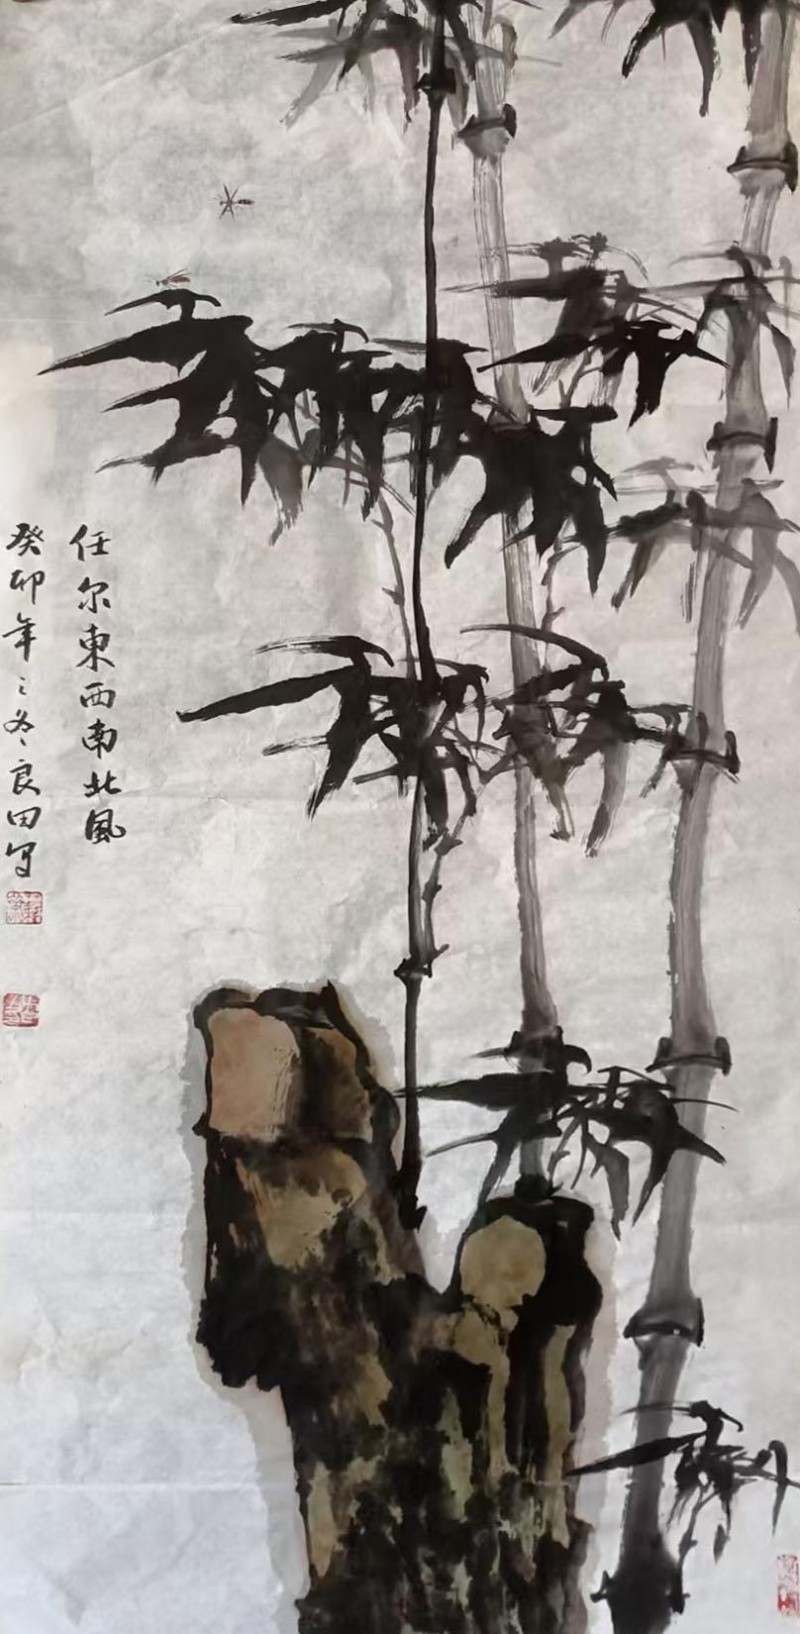 任尔東西南北風
癸卯年之冬良田写